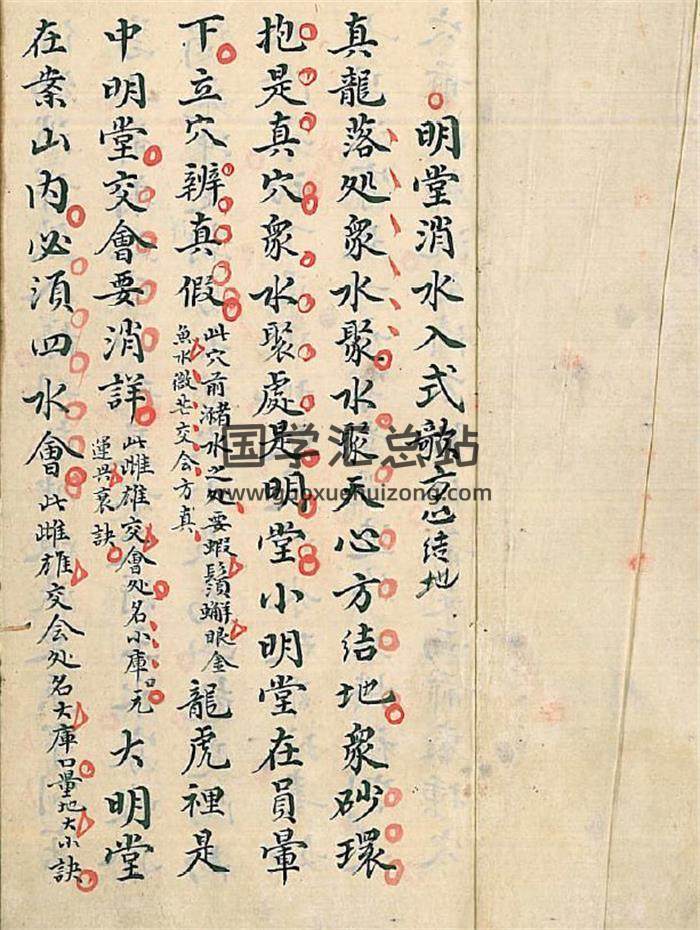 明堂消水入式歌
真龍落処衆水聚水聚天心方結地衆砂環
抱是真穴衆水聚處是明堂小明堂在員暈
下立穴辨真假此穴前瀦水之处要蝦鬚蠏眼金
魚水微茫交会方真龍虎裡是
中明堂交會要消詳此雌雄交會处名小庫口元
運興衰訣大明堂
在案山内必須四水會此雌雄交会处名大庫口量地大小訣
国学汇总站
www.guoxuehuizong.com